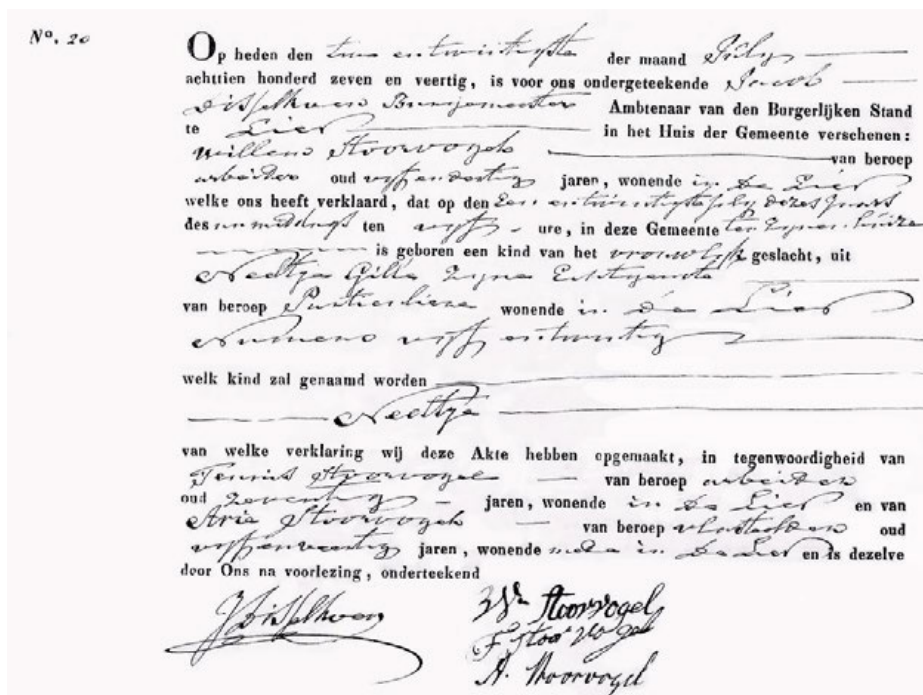 N°. 20
Op heden den twee entwintigste der maand July
achttien honderd zeven en veertig, is voor ons ondergeteekende Jacob
Disselkoen Burgemeester Ambtenaar van den Burgerlijken Stand
te Lier in het Huis der Gemeente verschenen:
Willem Stoorvogel van beroep
arbeider oud vyf en dertig jaren, wonende in De Lier
welke ons heeft verklaard, dat op den Een entwintigste July dezes Jaars
des namiddags ten vyf ure, in deze Gemeente ten zynen huize
is geboren een kind van het vrouwlyk geslacht, uit
Neeltje Gille Zyne Echtgenote
van beroep Particuliere wonende in de Lier
Numero vyf entwintig
welk kind zal genaamd worden
Neeltje
van welke verklaring wij deze Akte hebben opgemaakt, in tegenwoordigheid van
Teunis Stoorvogel van beroep arbeider
oud Zeventig jaren, wonende in De Lier en van
Arie Stoorvogel van beroep oud
vyf en veertig jaren, wonende mede in De Lier en is dezelve
door Ons na voorlezing, onderteekend
J Disselkoen
Wm Stoorvogel
T. Stoorvogel
A. Stoorvogel